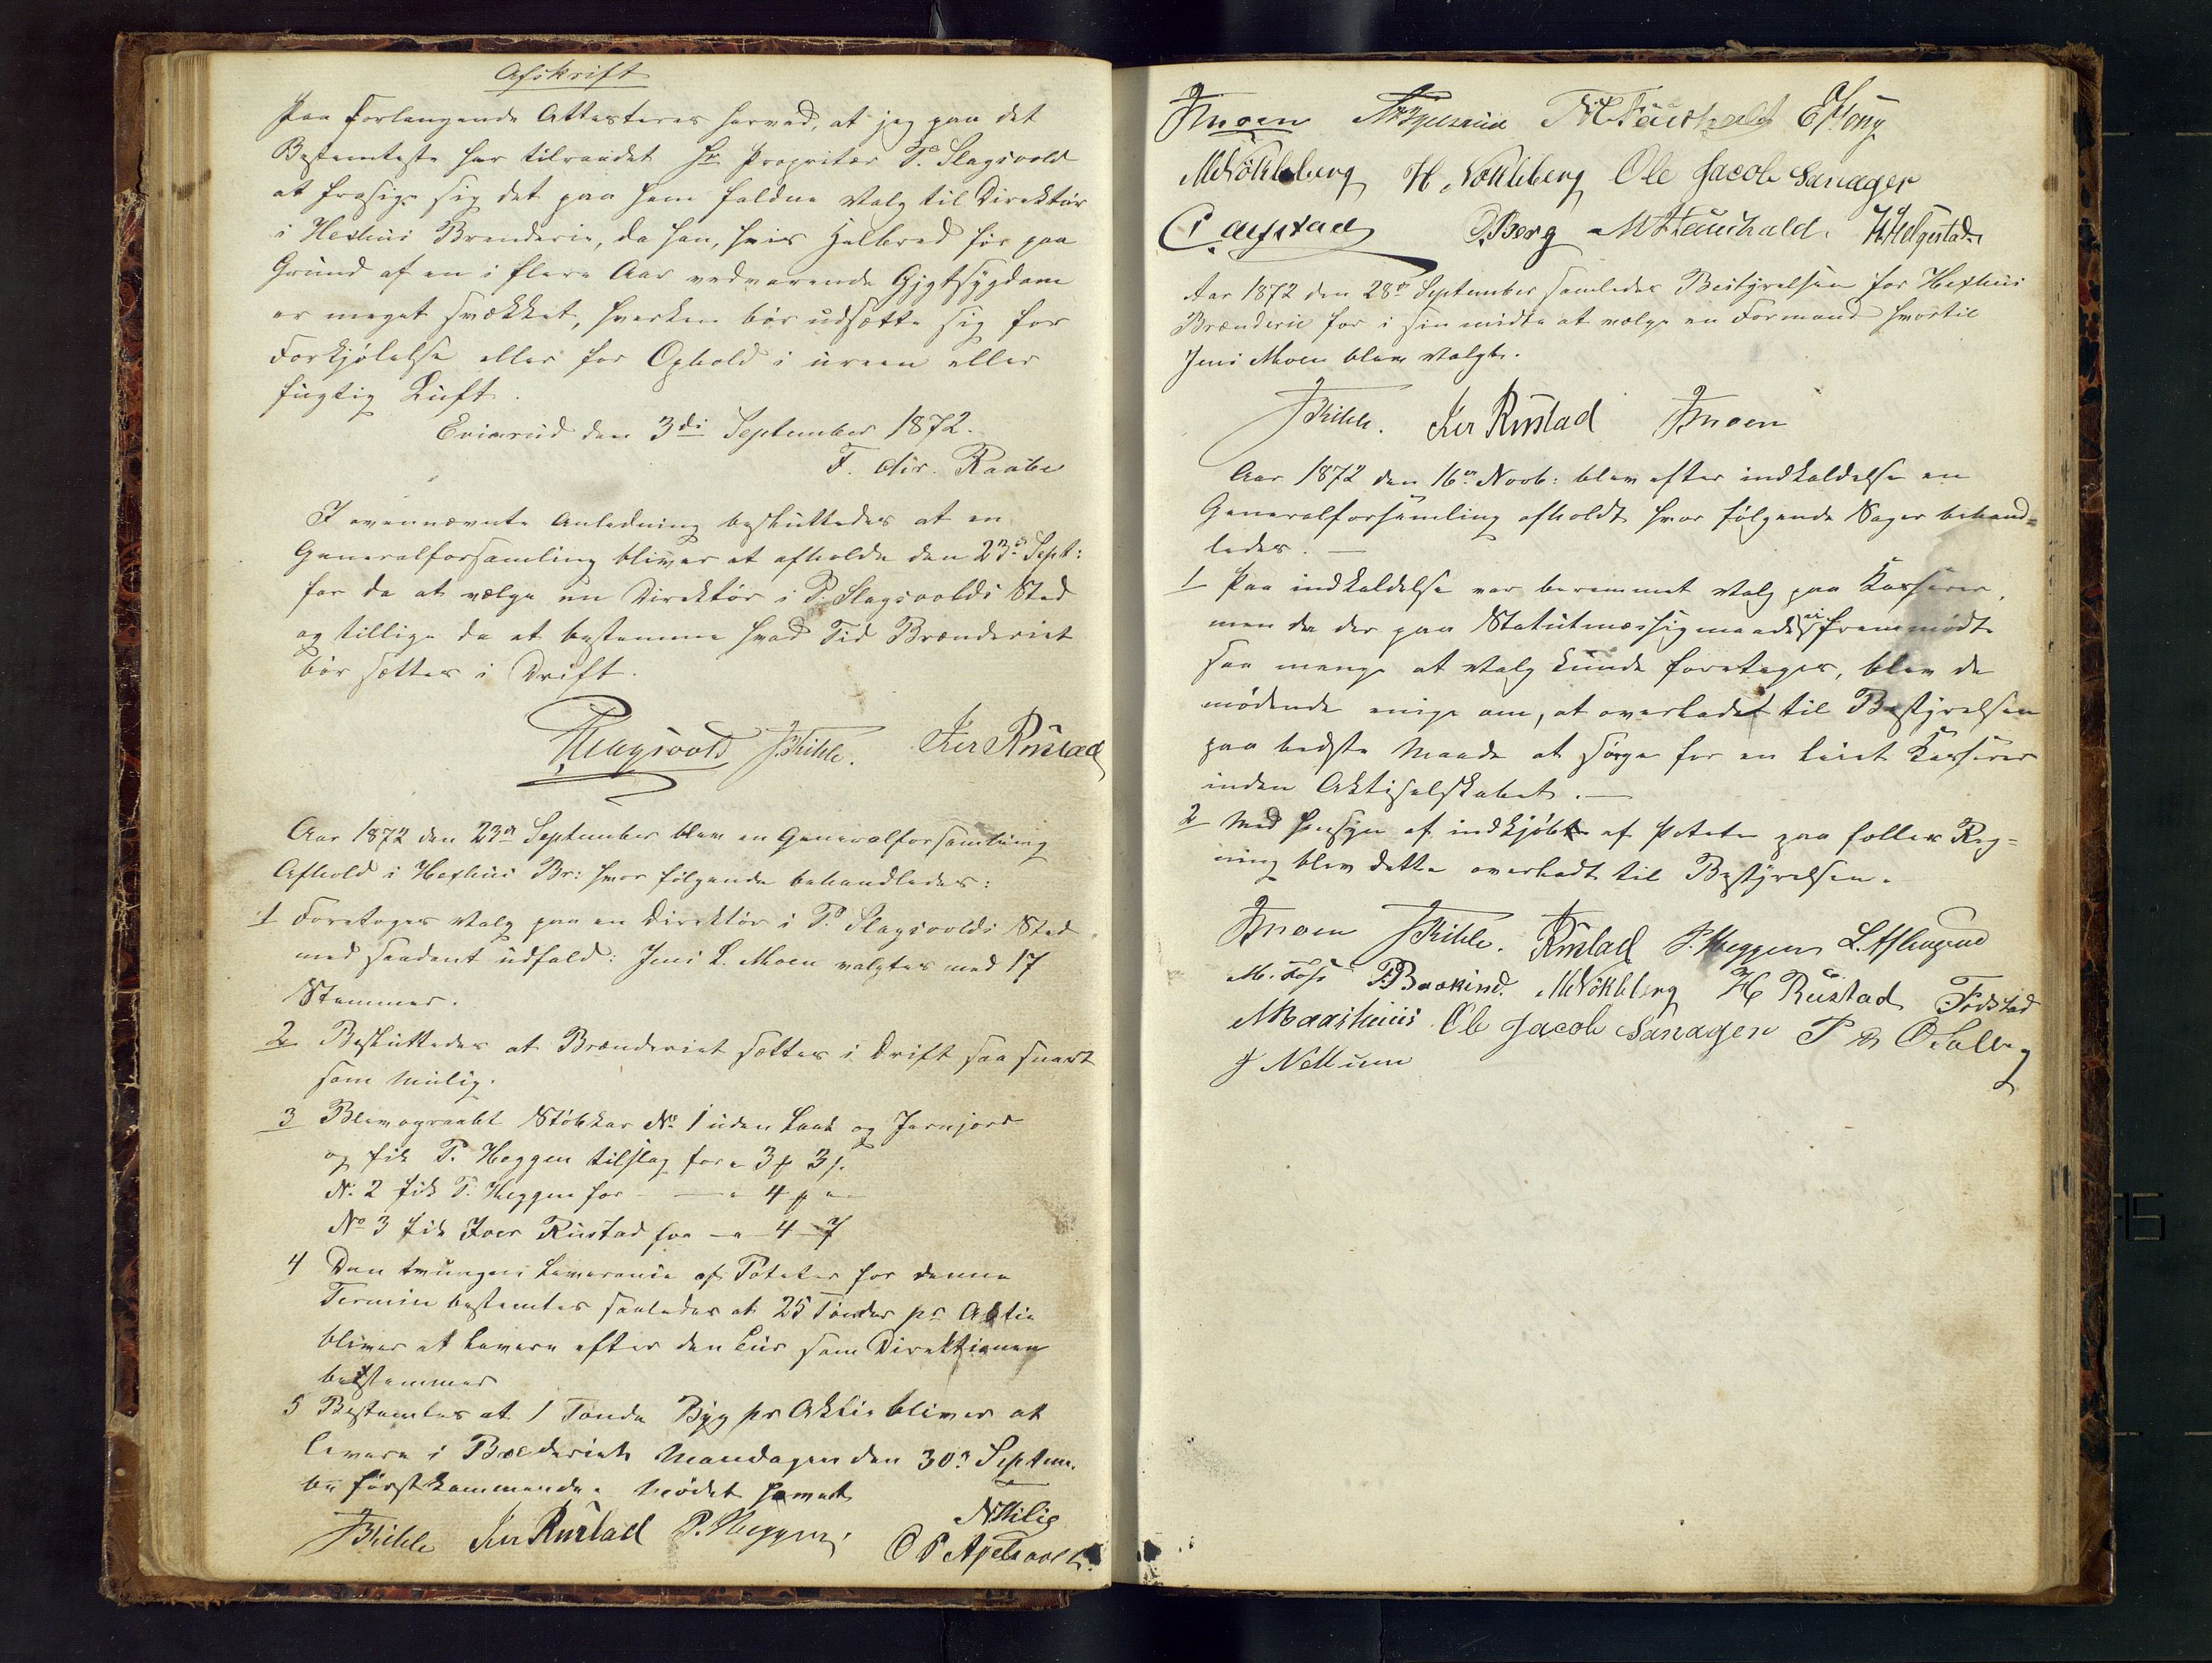 Afskrift
Paa Forlangende Attesteres herved, at jeg paa det
Bestemteste har tilraadet Hr Propritær P. Slagsvold
at frasige sig det paa ham faldne Valg til Direktör
i Hexhus Brenderie, da han, hvis Helbred for paa
Grund af en i flere Aar vedvarende Gigtsygdom
er meget svækket, hverken bör udsætte sig for
Forkjölelse eller for Ophold i ureen eller
fugtig Luft.
den 3di September 1872.
F. Chr. Raabe
I ovennævnte Anledning besluttedes at en
Generalforsamling bliver at afholde den 23de Sept:
for da at vælge en Direktör i P. Slagsvolds Sted
og tillige da at bestemme hvad Tid Brænderiet
bör sættes i Drift.
PSlagsvold JKihle. Iver Rustad
Aar 1872 den 23de September blev en Generalforsamling
Afhold i Hexhus Br: hvor fölgende behandledes:
1 Foretoges Valg paa en Direktör i P. Slagsvolds Sted
med saadant udfald: Jens L. Moen valgtes med 17
Stemmer.
2 Besluttedes at Brænderiet sættes i Drift saa snart
som mulig.
3 Blev opraabt Stöbkar No 1 uden Laak og Jernjord
og fik P. Heggen tilslag for 3 3
N. 2 fik P. Heggen for 4
No 3 fik Iver Rustad for 4 7
4 Den tvungne Leverance af Poteter for denne
Termin bestemtes saaledes at 25 Tönder pr Aktie
bliver at levere efter den Liis som Direktionen
bestemmer
5 Bestemtes at 1 Tönde Byg pr Aktie bliver at
levere i Bræderiet Mandagen den 30te Septem.
be förstkommende. Mödet hævet
JKihle Iver Rustad P. Heggen NKilie
O P Apelsvold.
JMoen M Hauchald EHong
MNökleberg H. Nökleberg Ole Jacob Sanager
OBerg M Hauchald. HHelgestad.
Aar 1872 den 28de September samledes Bestyrelsen for Hexhus
Brænderie for i sin midte at vælge en Formand hvortil
Jens Moen blev valgt.
JKihle. Iver Rustad JMoen
Aar 1872 den 16de Novb: blev efter indkaldelse en
Generalforsamling afholdt hvor fölgende Sager behand=
ledes.—
1 Paa indkaldelse var berammet Valg paa Kasserer,
men da der paa Statutmæssig maade ei fremmödte
saa mange at Valg kunde foretages, blev de
mödende enige om, at overladet til Bestyrelsen
paa bedste Maade at sörge for en leiet Kasserer
inden Aktiselskabet.—
2 Med hensyn af indkjöb af Poteter paa fælles Reg=
ning blev dette overladt til Bestyrelsen.
JMoen JKihle. Rustad P. Heggen
M. Foss MNökleberg H Rustad Fodstad
Ole Jacob Sanager
J Nettum